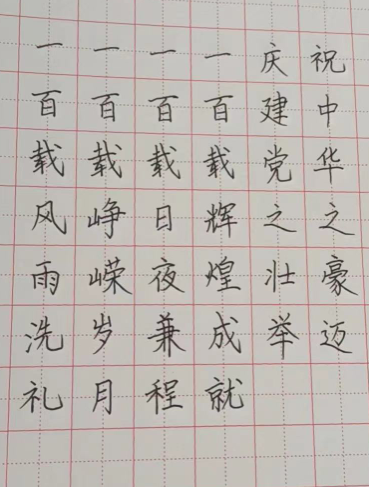 祝中华之豪迈
庆建党之壮举
一百载辉煌成就
一百载日夜兼程
一百载峥嵘岁月
一百载风雨洗礼